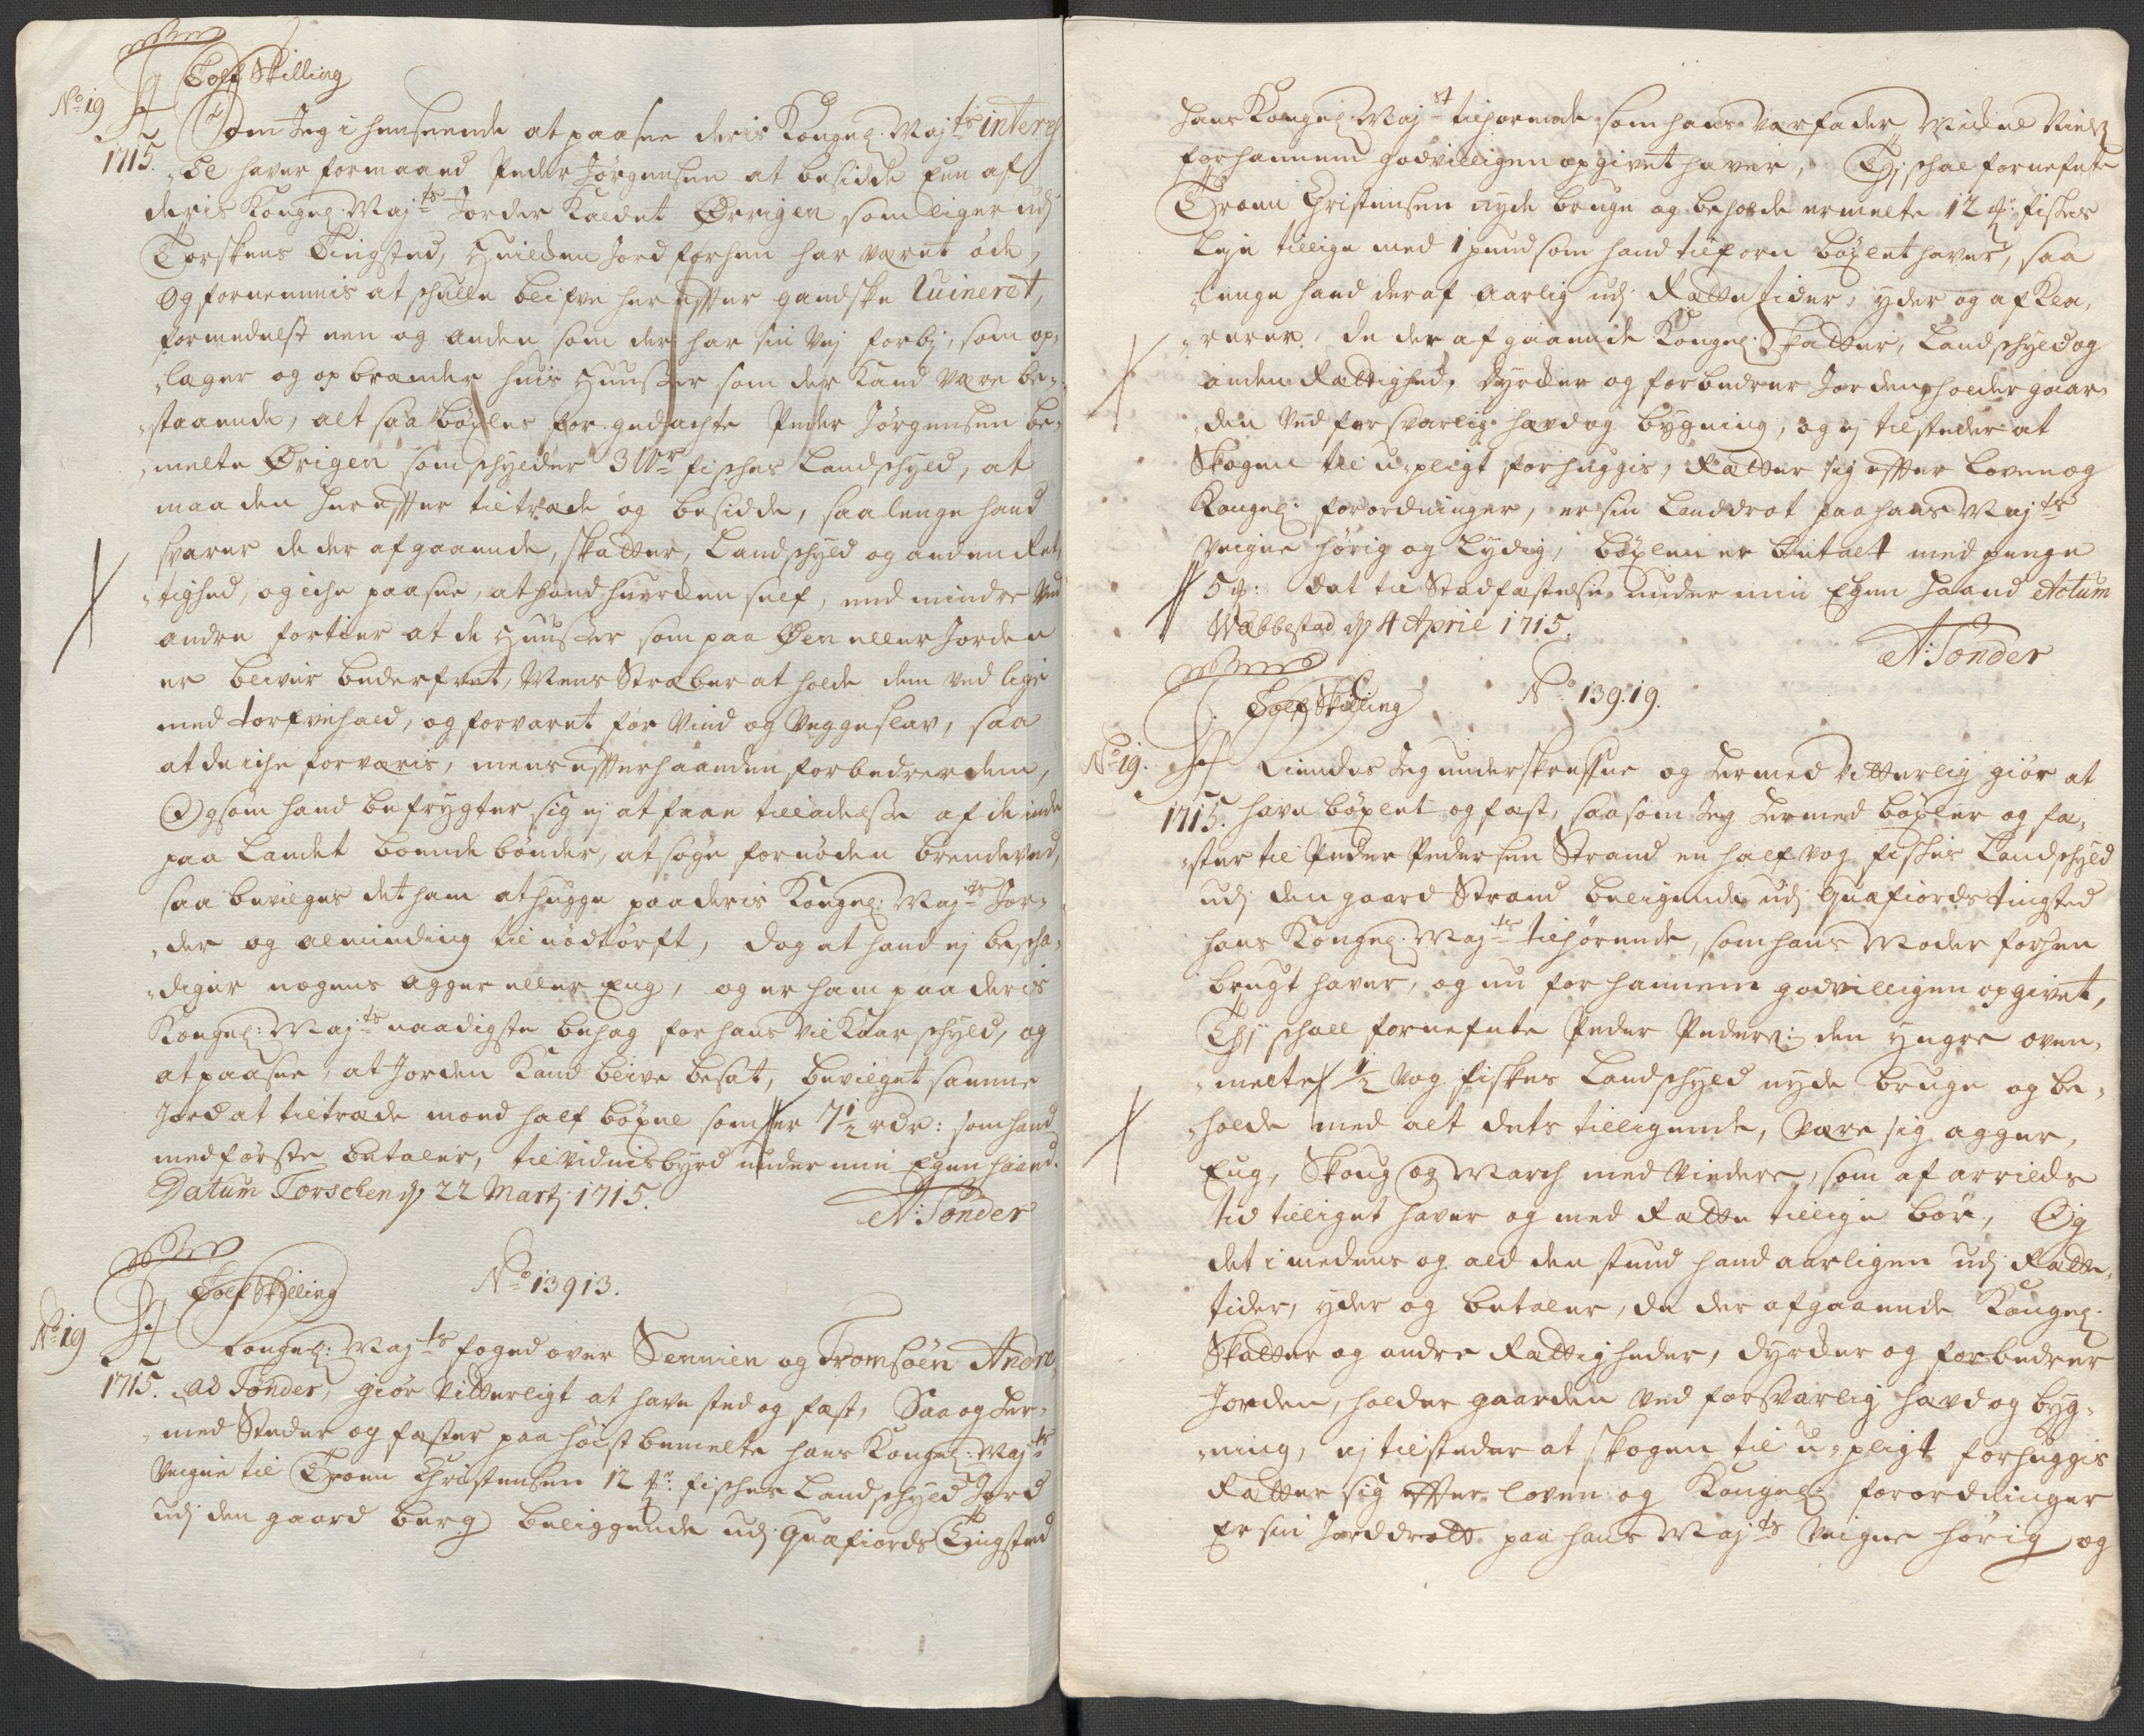 Tolf Skilling
No 19
Som Jeg i henseende at paasee deris Kongel: Majts interes
1715. se haver formaaed Peder Jørgensen at besidde Een af
deris Kongel: Majts Jorder Kaldet Ørrigen som liger udj
Torskens Tingsted, Hvilden Jord forhen har været øde,
Og fornemmis at schulle blifve her effter gandske Ruineret,
formedelst een og anden som der har sin Vej forbj, som op,
„lager og opbrænder huis Huusser som der Kand være be„
„staaende, alt saa bøxles for gedachte Peder Jørgensen be„
„melte Ørigen som schylder 3 Wr fisches Landschyld, at
maa den her effter tiltræde og besidde, saa lenge hand
svarer de der afgaaende, skatter, Landschyld og anden Ret,
„tighed, og iche paasee, at hand huerken self, end mindre Ved
andre fortier at de Huusser som paa Øen eller Jorden
er blivir bederfvet, Mens Stræber at holde dem ved lige
med torfvehald, og forvaret for Vind og Veggeslav, saa
at de iche forværis, mens effterhaanden forbedrer dem,
Og som hand befrygter sig ej at faae tilladelsse af de inde
paa Landet boende bønder, at søge fornøden brendeved,
saa bevilges det ham at hugge paa deris Kongel: Majts Jor„
„der og alminding til nødtørft, dog at hand ej bescha„
„diger nogens agger eller Eng, og er ham paa deris
Kongel: Majts naadigste behag for hans vilkaar schyld, og
at paasee, at Jorden Kand blive besat, bevilget samme
Jord at tiltræde med half bøxel som er 7½ rdr: som hand
med første betaler, til vidnisbyrd under min Egen haand.
Datum Torschen d 22 Martj 1715.
A: Tønder
Tolf Skilling No 13913.
No 19
Kongel: Majts foged over Sennien og Tromsøen Andre,
1715. as Tønder, giør Vitterligt at have sted og fæst, Saa og her„
„med Steder og fæster paa høist bemelte hans Kongel: Majts
Veigne til Troen Christensen 12 pr: fisches Landschyld Jord
udj den gaard berg beliggende udj Quæfiords Tingsted
hans Kongel: Majst tilhørende som hans Værfader Michel Niels
for hannem godvilligen opgivet haver, Thj schal fornefnte
Troen Christensen nyde bruge og beholde ermelte 12 pr: fiskes
Leje tillige med 1 pund som hand tilforn bøxlet haver, saa
„lenge hand deraf aarlig udj Rætte tider, yder og af Kla„
„rerer, de der af gaaende Kongel: Skatter, Landschyld og
anden Rættighed, dyrker og forbedrer Jorden, holder gaar„
„den Ved forsvarlig hævd og bygning, og ej tilsteder at
Skogen til u„pligt forhuggis, Rætter sig effter Loven og
Kongel: forordninger, er sin Landdrot paa hans Majts
Veigne hørig og Lydig, bøxlen er betalt med penge
5 : dat til Stadfæstelse under min Egen Haand Actum
Wæbbestad d 4 April 1715.
A: Tønder
Tolf Skilling No 139.19.
No 19.
Kiendes Jeg underskrefne og hermed Vitterlig giør at
1715. have bøxlet og fæst, saasom Jeg hermed bøxler og fæ„
„ster til Peder Pedersen Strand en half vog fiskes Landschyld
udj den gaard Strand beligende udj Quæfiords tingsted
hans Kongel: Majts tilhørende, som hans Moder forhen
brugt haver, og nu for hannem godvilligen opgivet,
Thj schall fornefnte Peder Peders: den yngre oven„
„melte ½ Vog fiskes Landschyld nyde bruge og be„
„holde med alt dets tilligende, være sig agger,
Eng, Skoug og March med Viedere, som af arrilds
tid tilliget haver og med Rætte tillige bør, Og
det imedens og ald den stund hand aarligen udj Rætte,
tider, yder og betaler, de der afgaaende Kongel:
Skatter og andre Rættigheder, dyrker og forbedrer
Jorden, holder gaarden ved forsvarlig hævd og byg„
„ning, ej tilsteder at skogen til u„pligt forhuggis
Rætter sig effter loven og Kongel: forordninger
Er sin Jorddrott paa hans Majts Veigne hørig og